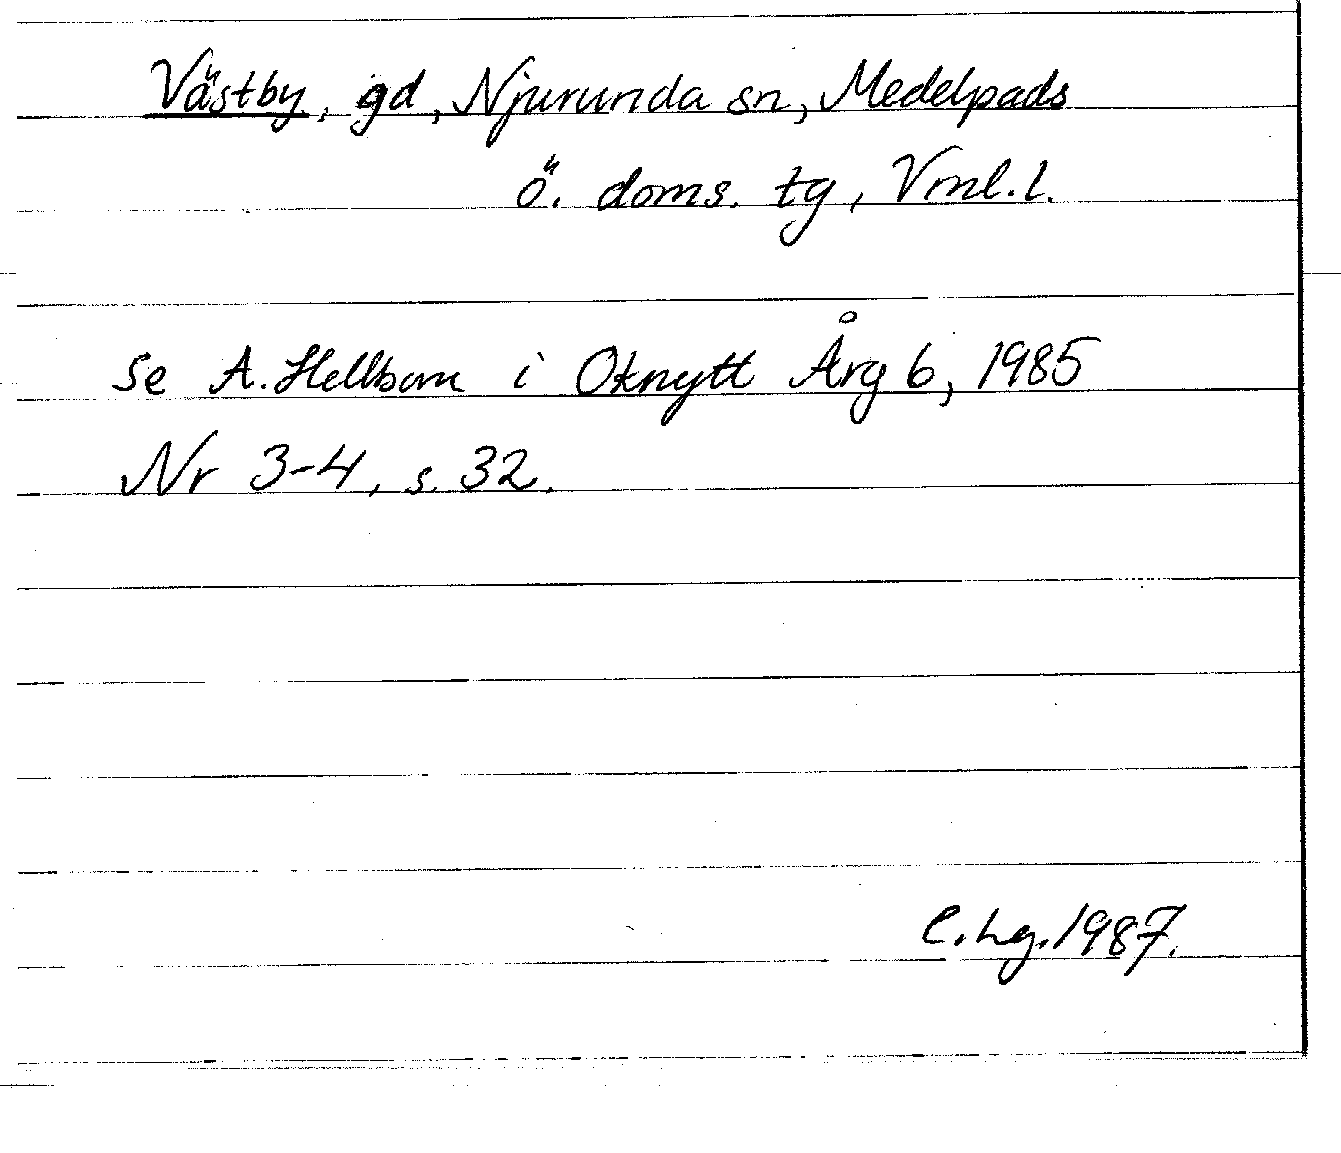 Västby, gd, Njurunda sn, Medelpads
ö. doms. tg, Vrnl. l.
Se A. Hellbom i Oknytt Årg 6, 1985
Nr 3-4, s. 32.
C. Lg. 1987.